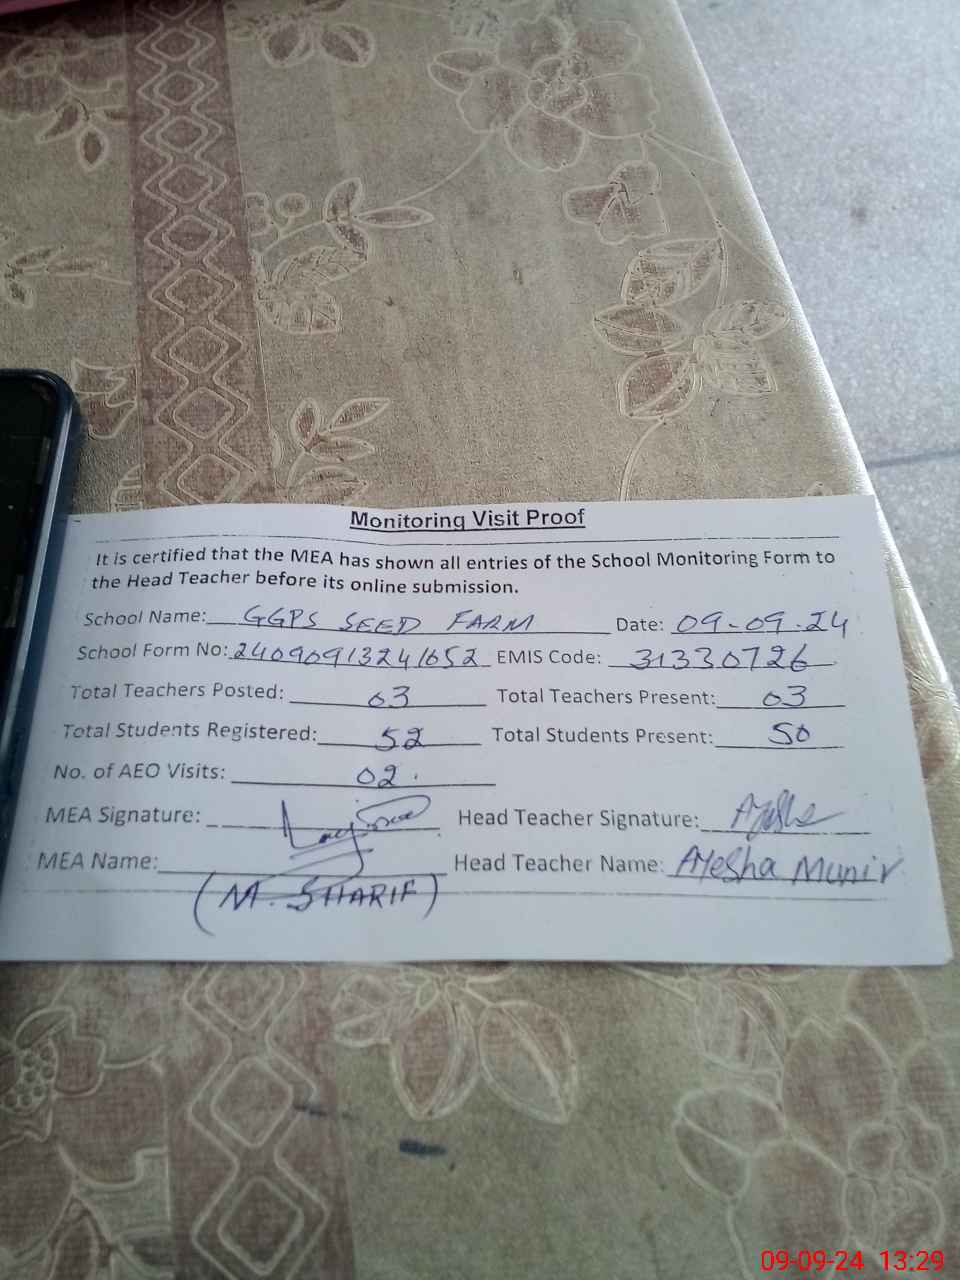 Monitoring Visit Proof
It is certified that the MEA has shown all entries of the School Monitoring Form to
the Head Teacher before its online submission.
School Name: GGPS SEED FARM Date: 09-09-24
School Form No: 24090913241652 EMIS Code: 31330726
Total Teachers Posted: 03 Total Teachers Present: 03
Total Students Registered: 52 Total Students Present: 50
No. of AEO Visits: 02.
MEA Signature: Head Teacher Signature: Ayesha
MEA Name: Head Teacher Name: Ayesha Munir
(M. SHARIF)
09-09-24 13:29